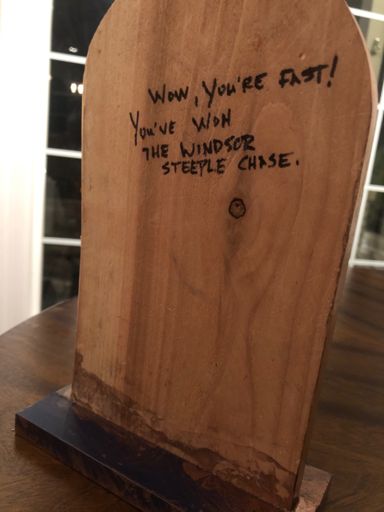 WOW, YOU'RE FAST!
YOU'VE WON
THE WINDSOR
STEEPLE CHASE.